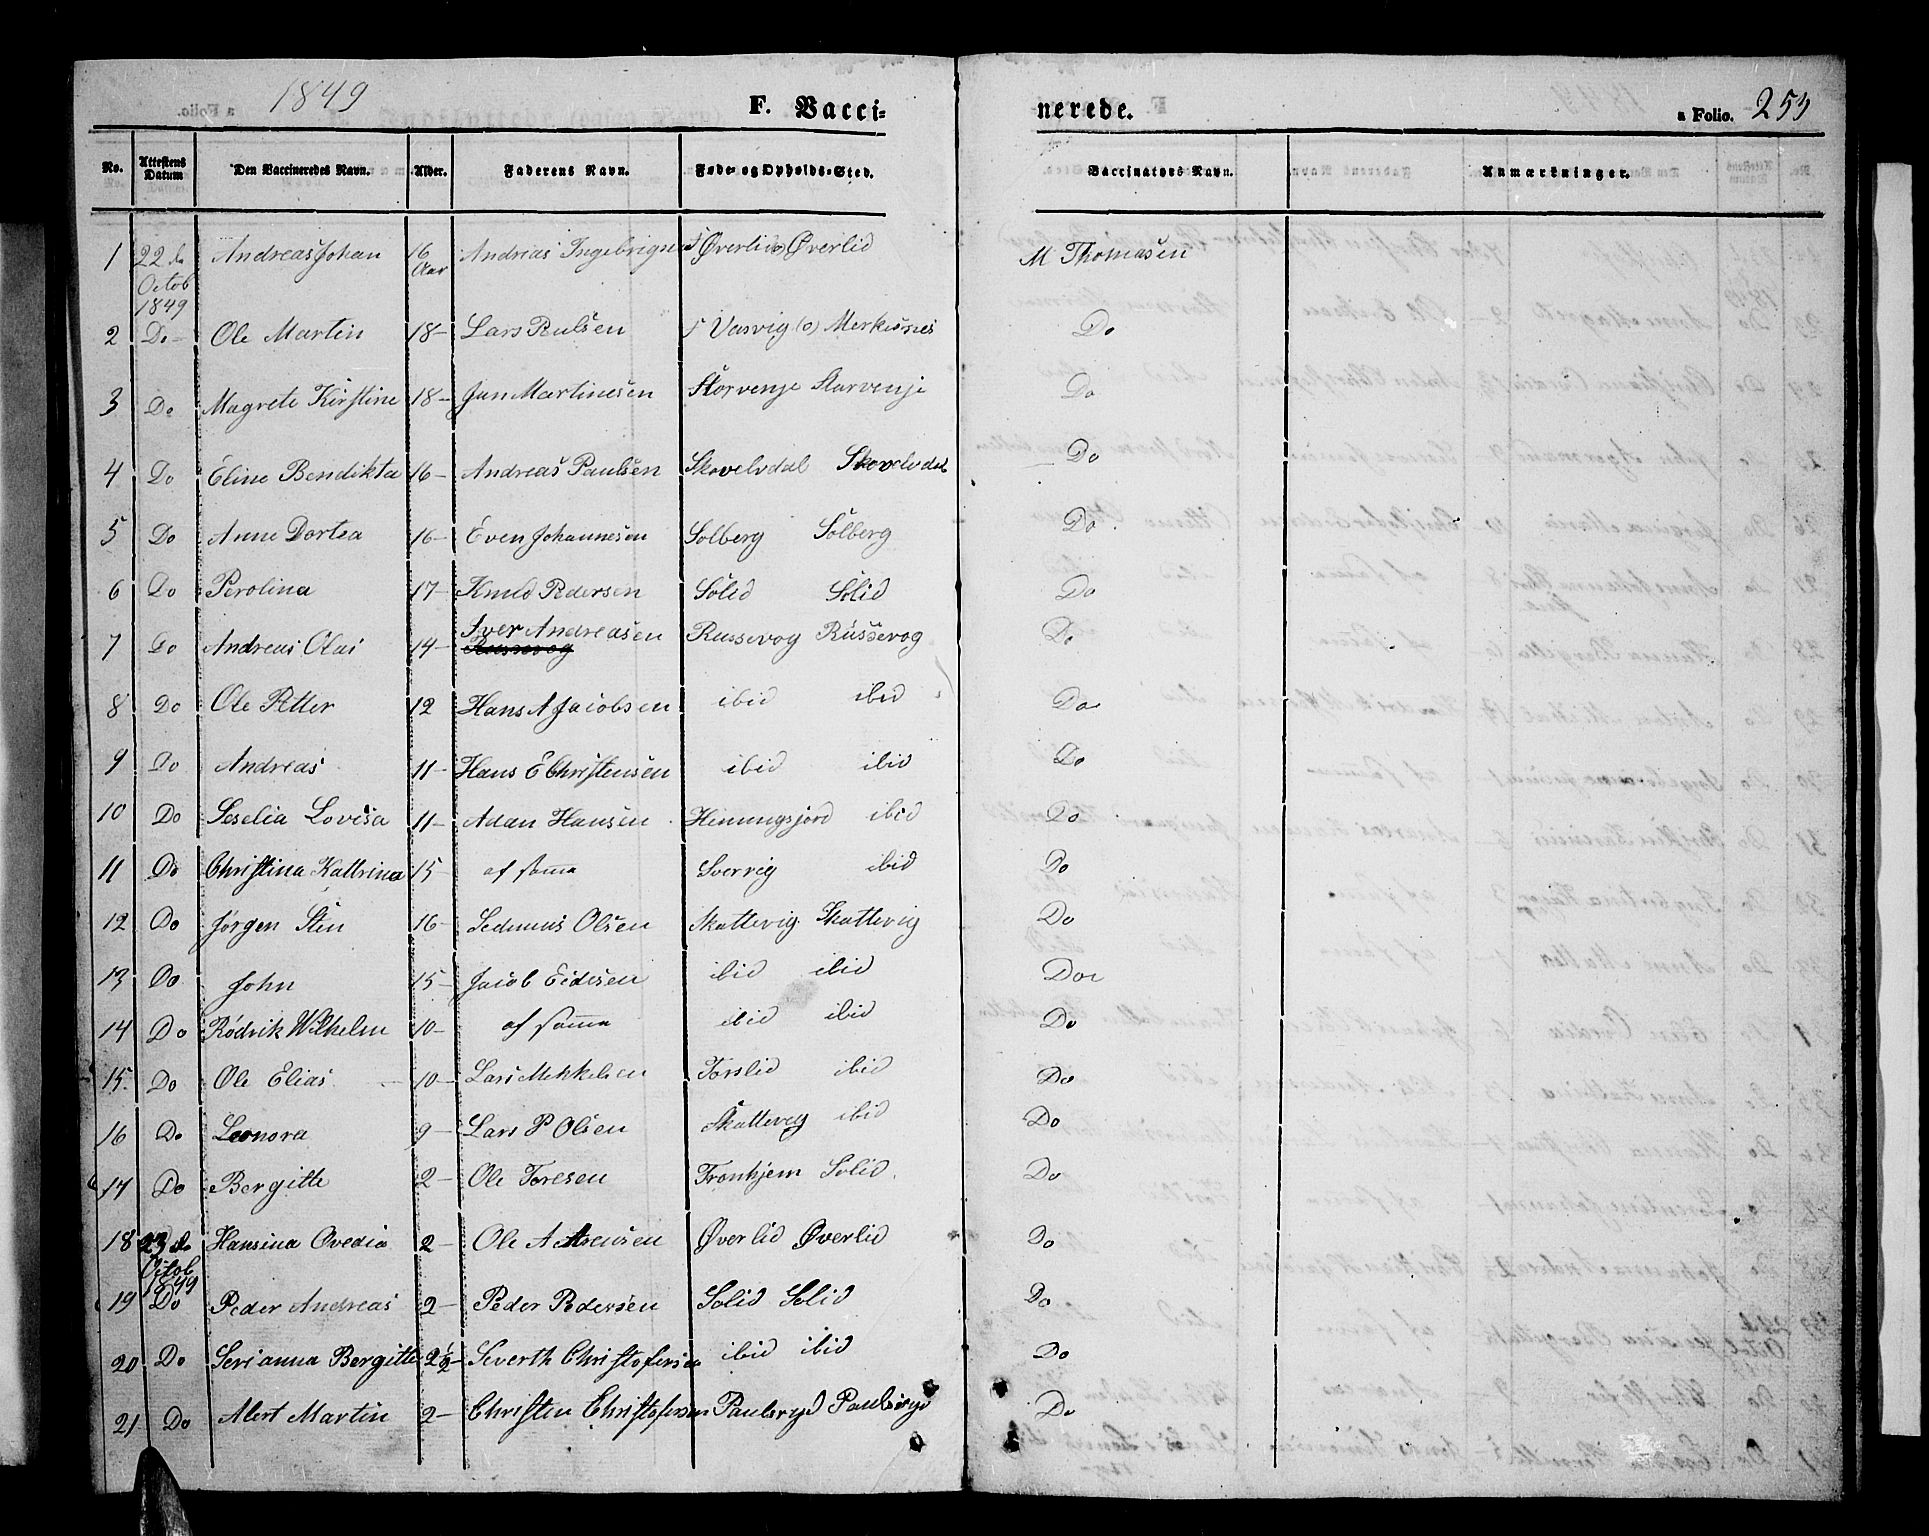 1849 F. Vaccinerede. a Folio. 253
No. Attestens Datum Den Vaccineredes Navn. Alder. Faderens Navn. Føde- og Opholds-Sted. Vaccinators Navn. Anmærkninger.
1 22 d. Octob 1849 Andreas Johan 16 Aar Andreas f Øverlid o) Øverlid M Thomasen
2 Do Ole Martin 18 Lars f Vasvig (o) Do
3 Do Magrete Kirstine 18 Jan Martinesen Storvenje Storvenje Do
4 Do Eline Bendikta 16 Andreas Paulsen Skovelvdal Skovelvdal Do
5 Do Anne Dortea 16 Even Johannesen Solberg Solberg Do
6 Do Perolina 17 Knud Pedersen Solid Solid Do
7 Do Andreas Olai 14 Iver Andreasen Russevog Russevog Do
Russevog
8 Do Ole Petter 12 Hans A Jacobsen ibid ibid Do
9 Do Andreas 11 Hans E Christensen ibid ibid Do
10 Do Seselia Lovisa 11 Adan Hansen ibid Do
11 Do Christina Kattrina 15 af samme ibid Do
12 Do Jørgen Sten 16 Olsen Skattevig Skattevig Do
13 Do John 15 Jacob Eidesen ibid ibid Do
14 Do Rødrik Wilhelm 10 af samme ibid ibid Do
15 Do Ole Elias 10 Lars Mekkelsen Torslid ibid Do
16 Do Leonora 9 Lars P Olsen Skattevig ibid Do
17 Do Bergitte 2 Ole Toresen Tronhjem Solid Do
18 23 d. Octob 1849 Hansina Ovedia 2 Ole A Øverlid Øverlid Do
19 Do Peder Andreas 2 Peder Pedersen Solid Solid Do
20 Do Serianna Bergitte 2 1/2 Severth Christofersen ibid ibid Do
21 Do Alert Martin 2 Christen Christofersen Paulsryd Paulsryd Do